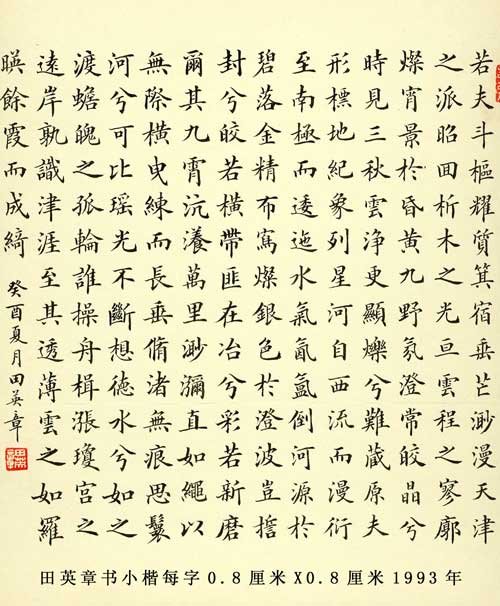 若夫斗樞耀質箕宿垂芒渺漫天津
之派昭回析木之光亘雲程之寥廓
燦宵景於昏黃九野氛澄常皎晶兮
時見三秋雲淨更顯爍兮難藏原夫
形標地紀象列星河自西流而漫衍
至南極而逶迤水氣氤氳倒河源於
碧落金精布寫燦銀色於澄波豈擔
封兮皎若橫帶匪在冶兮彩若新磨
爾其九霄沆瀁萬里渺瀰直如繩以
無際橫曳練而長垂脩渚無痕思褰
河兮可比瑤光不斷想德水兮如之
渡蟾魄之孤輪誰操舟楫漲瓊宮之
遠岸孰識津涯至其透薄雲之如羅
暎餘霞而成綺 癸酉夏月田英章
田英章书小楷每字0.8厘米X0.8厘米1993年